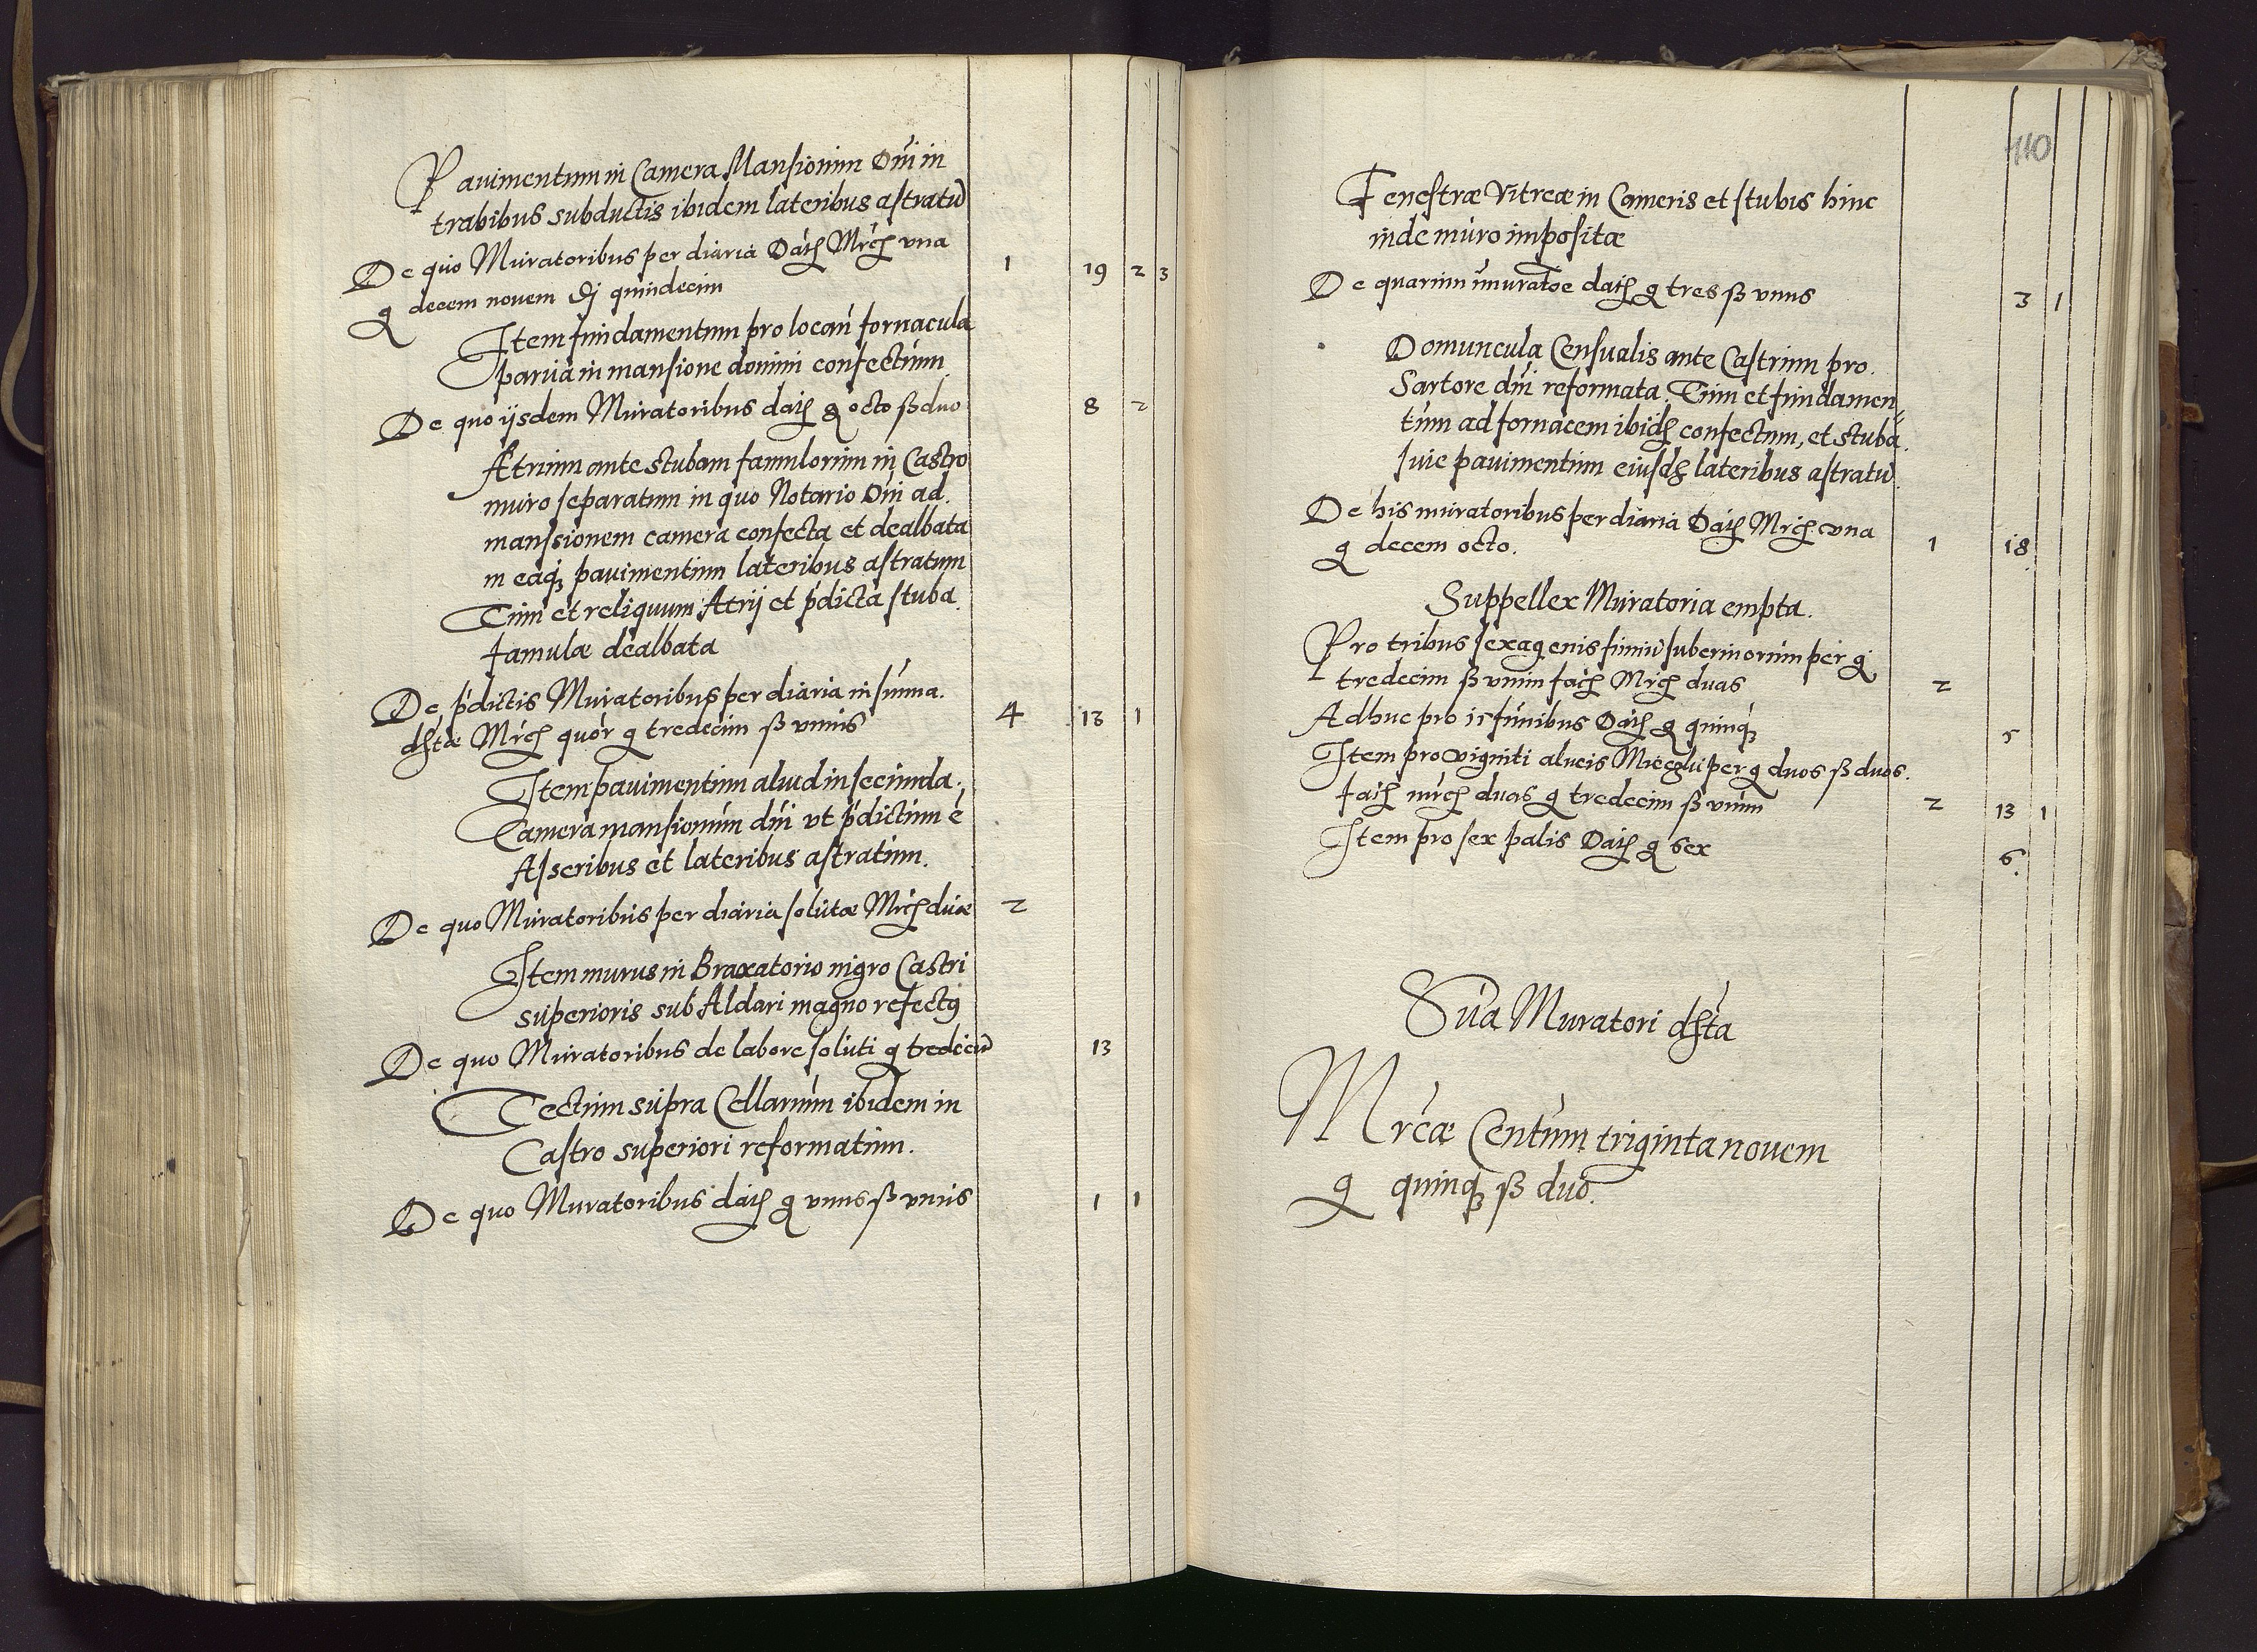 Pavimentum in Camera Mansionum Dni in
trabibus subductis ibidem lateribus astratũ
De quo Muratoribus per diaria Datȝ Mrcȝ vna 1 19 2 3
g decem novem quindecim
Item fundamentum pro locañ fornacula
parua in mansione domini confectum
De quo ijsdem Muratoribus datȝ g octo ß duo 8 2
Atrium ante stubam famulorum in Castro
muro separatum in quo Notario Dni ad
mansionem camera confecta et dealbata
in eaqȝ pavimentum lateribus astratum
Tum et reliquum Atrij et pdicta stuba
famulae dealbata
De pdictis Muratoribus per diaria in summa.
dstae Mrcȝ quor g tredecim ß vnus 4 13 1
Item pavimentum aliud in secunda
Camera mansionum dni vt pdictum è
Asseribus et lateribus astratum.
De quo Muratoribus per diaria solutae Mrcȝ duae 2
Item murus in Braxatorio nigro Castri
superioris sub Aldari magno refectꝰ
De quo Muratoribus de labore soluti g tredecim 13
Tectum supra Cellarium ibidem in
Castro superiori reformatum.
De quo Muratoribus datȝ g vnus ß vnus 1 1
110
Fenestrae Vitreae in Cameris et stubis hinc
inde muro impositae
De quarum imuratoe datȝ g tres ß vnus 3 1
Domuncula Censualis ante Castrum pro
Sartore dni reformata. Tum et fundamen
tum ad fornacem ibidȝ confectum, et stuba
suie pavimentum eiusdȝ lateribus astratũ
De his muratoribus per diaria Datȝ Mrcȝ vna
g decem octo. 1 18
Suppellex Muratoria empta.
Pro tribus sexagenis funiũ suberinorum per g
tredecim ß vnum facȝ Mrcȝ duas 2
Adhuc pro 15 funibus Datȝ g quinqȝ 5
Item pro viginti alueis Mieczki per g duos ß duos.
facȝ mrcȝ duas g tredecim ß vnum 2 13 1
Item pro sex palis Datȝ g sex 6
Suma Muratori dsta
Mrcae Centum triginta novem
g quinqȝ ß duo.